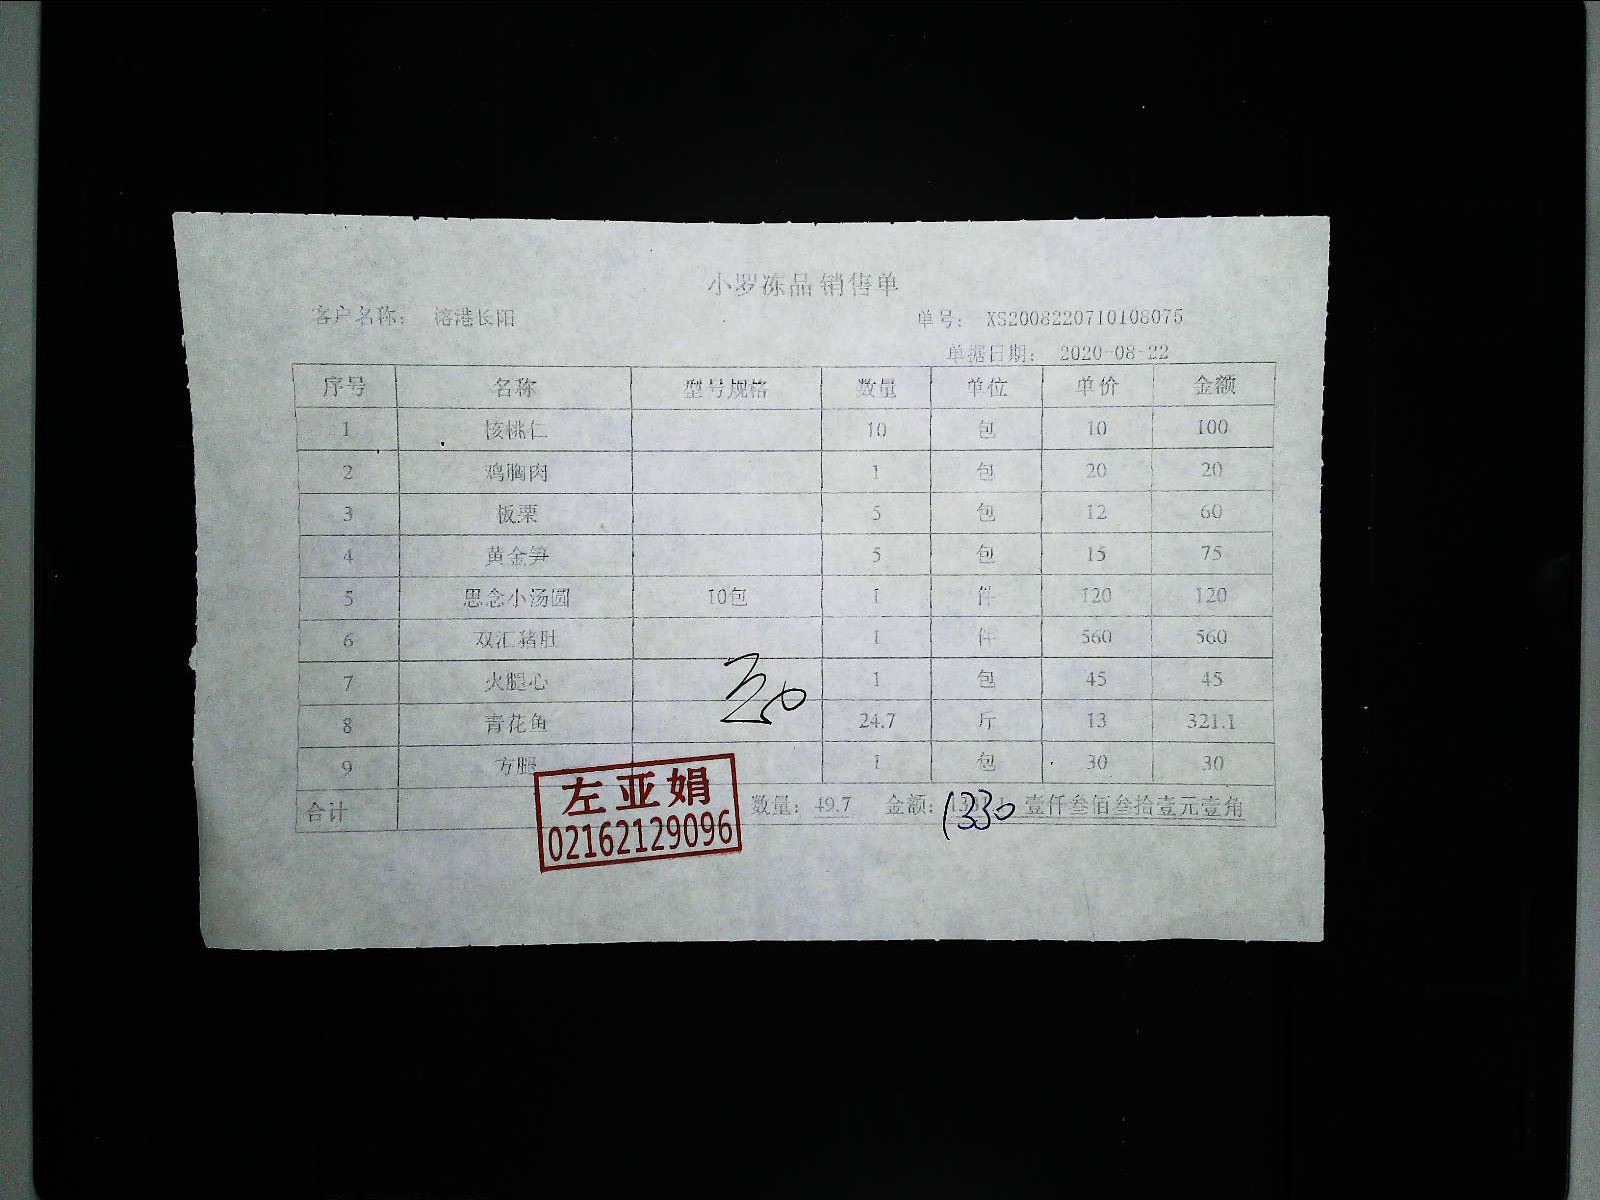 小罗冻品销售单
客户名称： 溶港长阳 单号： XS2008220710108075
单据日期： 2020-08-22
序号 名称 型号规格 数量 单位 单价 金额
1 核桃仁 10 包 10 100
2 鸡胸肉 1 包 20 20
3 板栗 5 包 12 60
4 黄金笋 5 包 15 75
5 思念小汤圆 10包 1 件 120 120
6 双汇猪肚 1 件 560 560
7 火腿心 1 包 45 45
8 青花鱼 24.7 斤 13 321.1
9 方腿 1 包 30 30
合计 数量： 49.7 金额： 1330 壹仟叁佰叁拾壹元壹角
左亚娟
02162129096